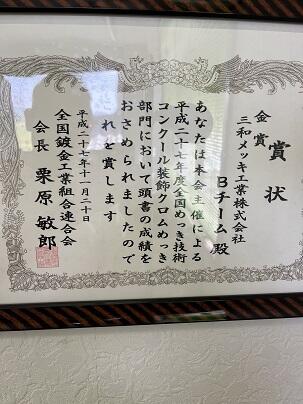 賞状
金賞
三和メッキ工業株式会社
Bチーム殿
あなたは本会主催による
平成二十七年度全国めっき技術
コンクール装飾クロムめっき
部門において頭書の成績を
おさめられましたので
これを賞します
平成二十七年十一月二十日
全国鍍金工業組合連合会
会長 栗原敏郎